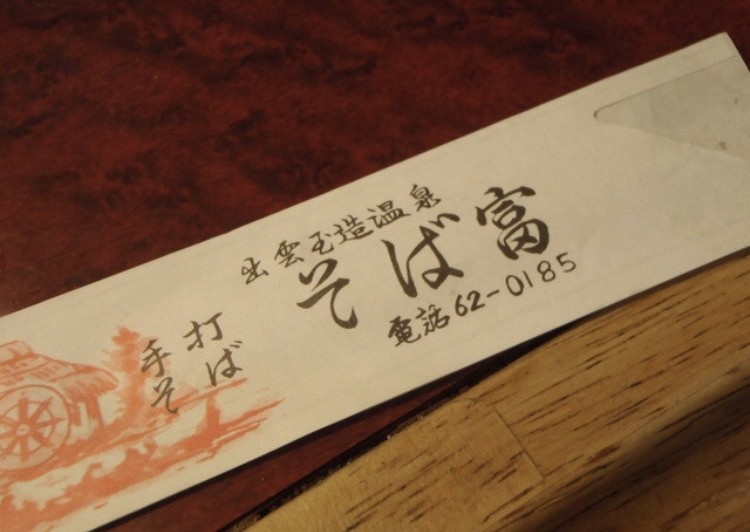 出雲玉造温泉
そば富
電話62-0185
手打
そば